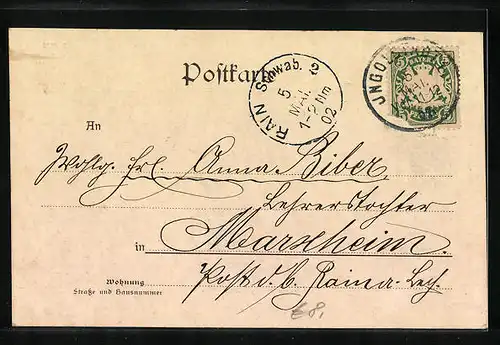 Postkarte
RAIN Schwab. 2
5
MAI.
1-2 Nm
02
INGOL
MAI.
An
Wohlg. Frl. Anna Biber
Lehrerstochter
in Marxheim.
Post d. b. Rain a. Lech.
Wohnung
Straße und Hausnummer
€8,